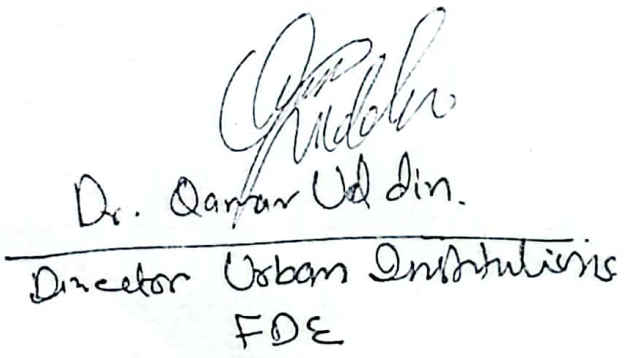 Dr. Qamar Ud din.
Director Urban Institutions
FDE